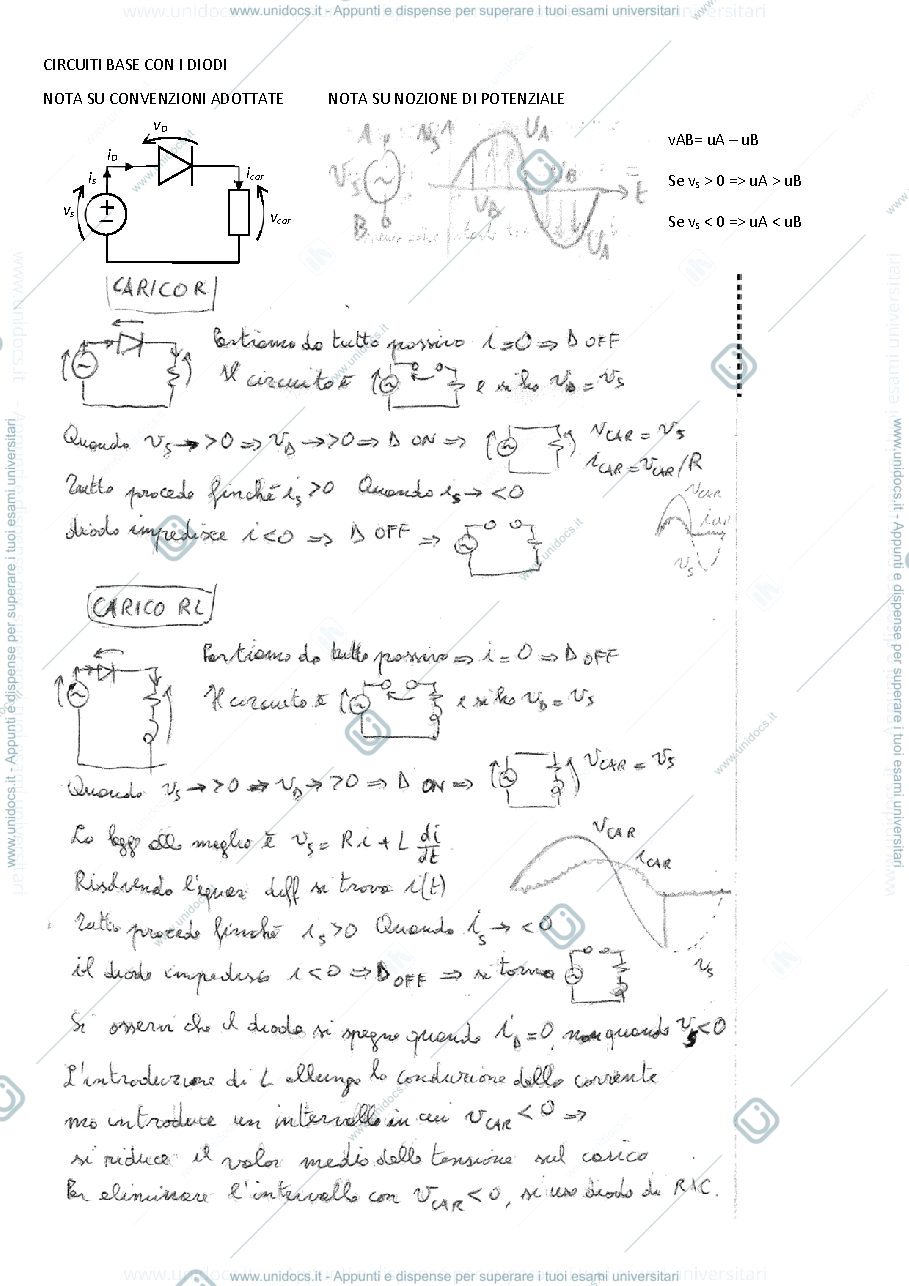 www.unidocs.it - Appunti e dispense per superare i tuoi esami universitari
CIRCUITI BASE CON I DIODI
NOTA SU CONVENZIONI ADOTTATE
NOTA SU NOZIONE DI POTENZIALE
vD
iD
is
icar
vs
vcar
A
vs
uA
vs
uB
t
uB
B
uA
vAB= uA – uB
Se vs > 0 => uA > uB
Se vs < 0 => uA < uB
CARICO R
Partiamo da tutto passivo i=0 => D OFF
Il circuito è e si ha vD = vs
Quando vs → >0 => vD → >0 => D ON => vCAR = vs
iCAR = vCAR/R
Tutto procede finché is >0 Quando is → <0
vCAR
iCAR
vs
diodo impedisce i<0 => D OFF =>
CARICO RL
Partiamo da tutto passivo => i=0 => D OFF
Il circuito è e si ha vD = vs
Quando vs → >0 => vD → >0 => D ON => vCAR = vs
La legge alla maglia è vs = Ri + L di/dt
vCAR
iCAR
Risolvendo l'equaz diff si trova i(t)
Tutto procede finché is >0 Quando is → <0
vs
il diodo impedisce i<0 => D OFF => si torna
Si osservi che il diodo si spegne quando iD=0, non quando vs<0
L'introduzione di L allunga la conduzione della corrente
ma introduce un intervallo in cui vCAR <0 =>
si riduce il valor medio della tensione sul carico
Per eliminare l'intervallo con vCAR <0, si usa diodo di RIC.
www.unidocs.it - Appunti e dispense per superare i tuoi esami universitari
www.unidocs.it - Appunti e dispense per superare i tuoi esami universitari
www.unidocs.it - Appunti e dispense per superare i tuoi esami universitari